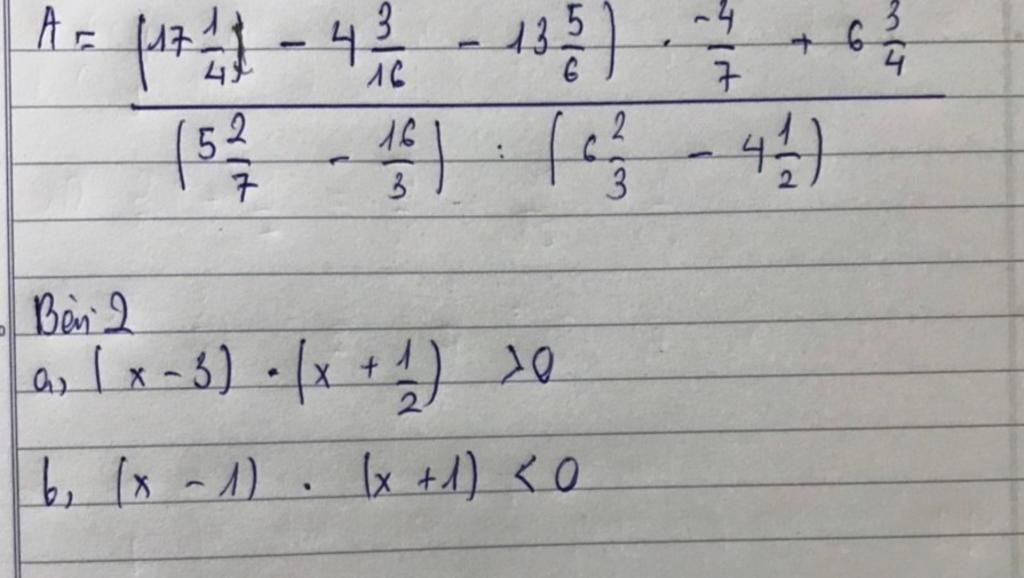 A = (17 1/4) - 4 3/16 - 13 5/6) . -4/7 + 6 3/4
(5 2/7 - 16/3) : (6 2/3 - 4 1/2)
Bài 2
a, (x - 3) . (x + 1/2) > 0
b, (x - 1) . (x + 1) < 0